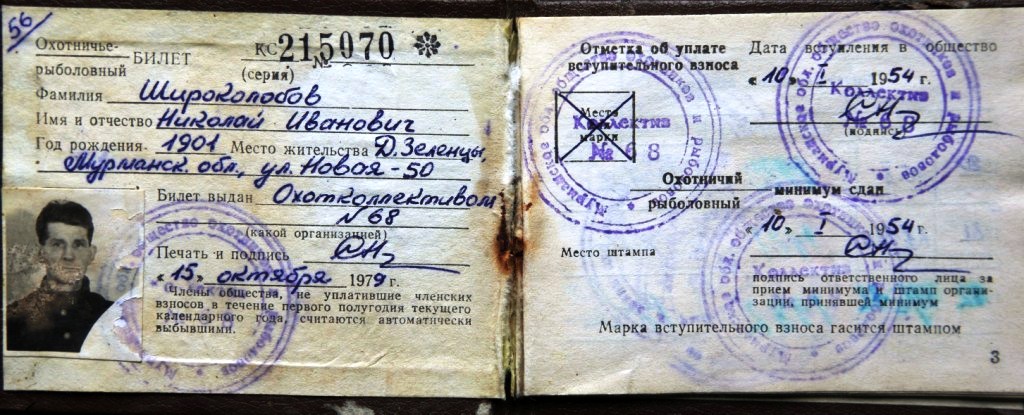 56
Охотничье-
рыболовный
БИЛЕТ
КС № 215070 ✼
(серия)
Фамилия Широколобов
Имя и отчество Николай Иванович
Год рождения 1901 Место жительства Д. Зеленцы,
Мурманск. обл., ул. Новая-50
Билет выдан Охотколлективом
N 68
(какой организацией)
Печать и подпись
«15» октября 1979 г.
Члены общества, не уплатившие членских
взносов в течение первого полугодия текущего
календарного года, считаются автоматически
выбывшими.
Отметка об уплате
вступительного взноса
Место
марки
Коллектив
№ 8
Дата вступления в общество
«10» I 1954 г.
Коллектив
(подпись)
Охотничий
рыболовный
минимум сдан
«10» I 1954 г.
Место штампа
Коллектив
подпись ответственного лица за
прием минимума и штамп органи-
зации, принявшей минимум
Марка вступительного взноса гасится штампом
3